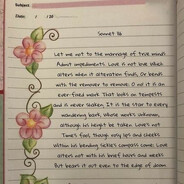 Subject
Date: / / 20
Sonnet 116
Let me not to the marriage of true minds
Admit impediments. Love is not love which
alters when it alteration finds, Or bends
with the remover to remove. O no! it is an
ever-fixed mark That looks on tempests
and is never shaken; It is the star to every
wandering bark, Whose worth's unknown,
although his height be taken. Love's not
Time's fool, though rosy lips and cheeks
Within his bending sickle's compass come; Love
alters not with his brief hours and weeks
But bears it out even to the edge of doom.